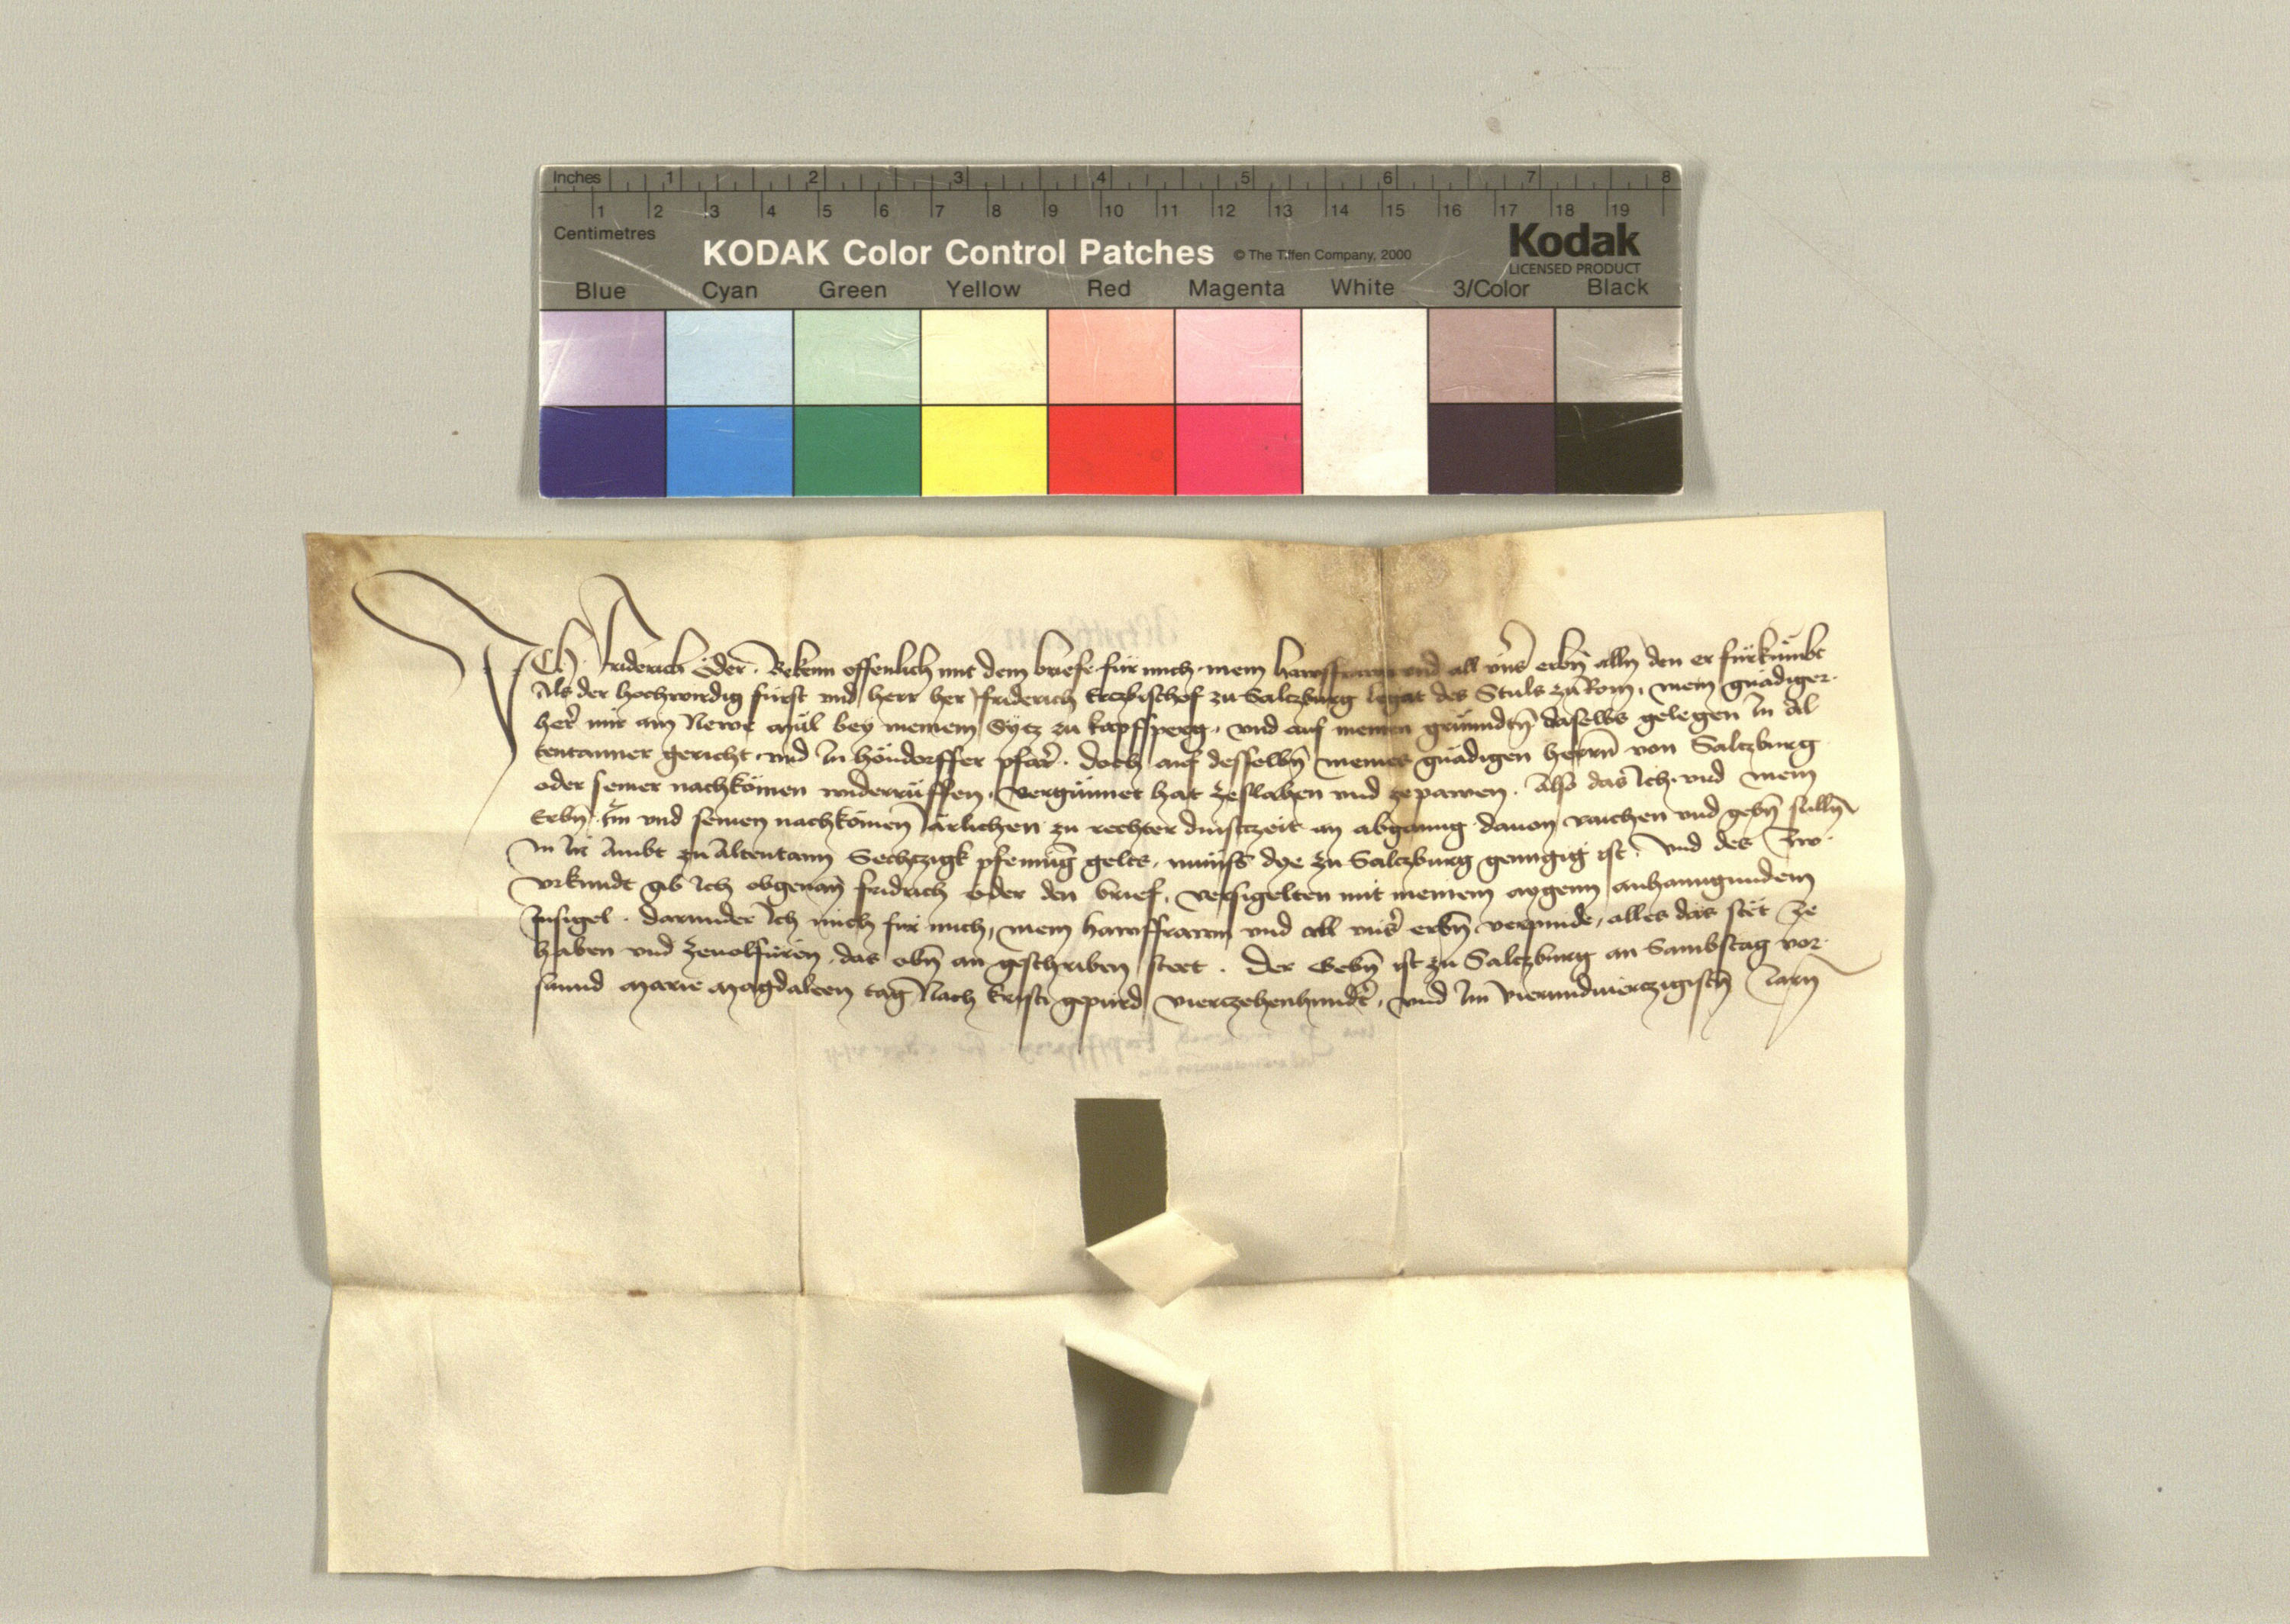 Inches 1 2 3 4 5 6 7 8
1 2 3 4 5 6 7 8 9 10 11 12 13 14 15 16 17 18 19
Centimetres
KODAK Color Control Patches © The Tiffen Company, 2000 Kodak
LICENSED PRODUCT
Blue Cyan Green Yellow Red Magenta White 3/Color Black
Ich Friderich Öder. Bekenn offenlich mit dem briefe für mich mein hawsfrawn und all vnser erbn̄ alln̄ den er fürkumbt
Als der hochwirdig fürst und herr her Friderich Erczbischof zu Salczburg legat des Stuls zu Rom, mein gnädiger
her mir ain Newe mül bey meinem Sytz zu kapfsperg, vnd auf meinen gründtn̄ daselbs gelegen In Al
tentanner gericht vnd In höndorffer pfarr. doch auf desselbn̄ meines gnädigen herrn̄ von Salczburg
oder seiner nachkömen widerrüffen, vergünnet hat zeslahen vnd zepawen. Also das Ich vnd mein
Erbn̄ Im vnd seinen nachkömen Järlichen zu rechter dinstzeit an abganng dauon raichen vnd gebn̄ sulln̄
In Ir Ambt zu Altentann Sechtzigk pfenning gelts, münss dye zu Salczburg genngig ist. Vnd des zw
vrkundt gib Ich obgenan̄ fridrich öder den brief, versigelten mit meinem aygenn anhanngundem
Insigel. darunder Ich mich für mich, mein hawsfrawn vnd all vnser erbn̄ verpinde, alles das stët ze
haben vnd zeuolfüren, das obn̄ an geschriben steet. Der Gebn̄ ist zu Salczburg an Sambstag vor
sannd Marie Magdaleen tag Nach kristi gepurd viertzehenhundert, vnd Im Vierundviertzigistn̄ Jarn̄